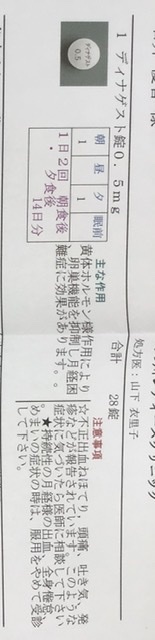 1 ディナゲスト錠0.5mg
ディナゲスト
0.5
朝 昼 夕 眠前
1 1
1日2回 朝食後
・夕食後
14日分
主な作用
黄体ホルモン様作用により
、卵巣機能を抑制し月経困
難症に効果があります。。
合計 28錠
処方医：山下 衣里子
注意事項
☆不正出血、ほてり、頭痛、吐き気、発
疹などが報告されています。このような
症状に気づいたら医師に相談して下さい
。★持続性の月経様の出血、全身倦怠、
めまいの症状の時は、服用をやめて受診
して下さい。
レディースクリニック